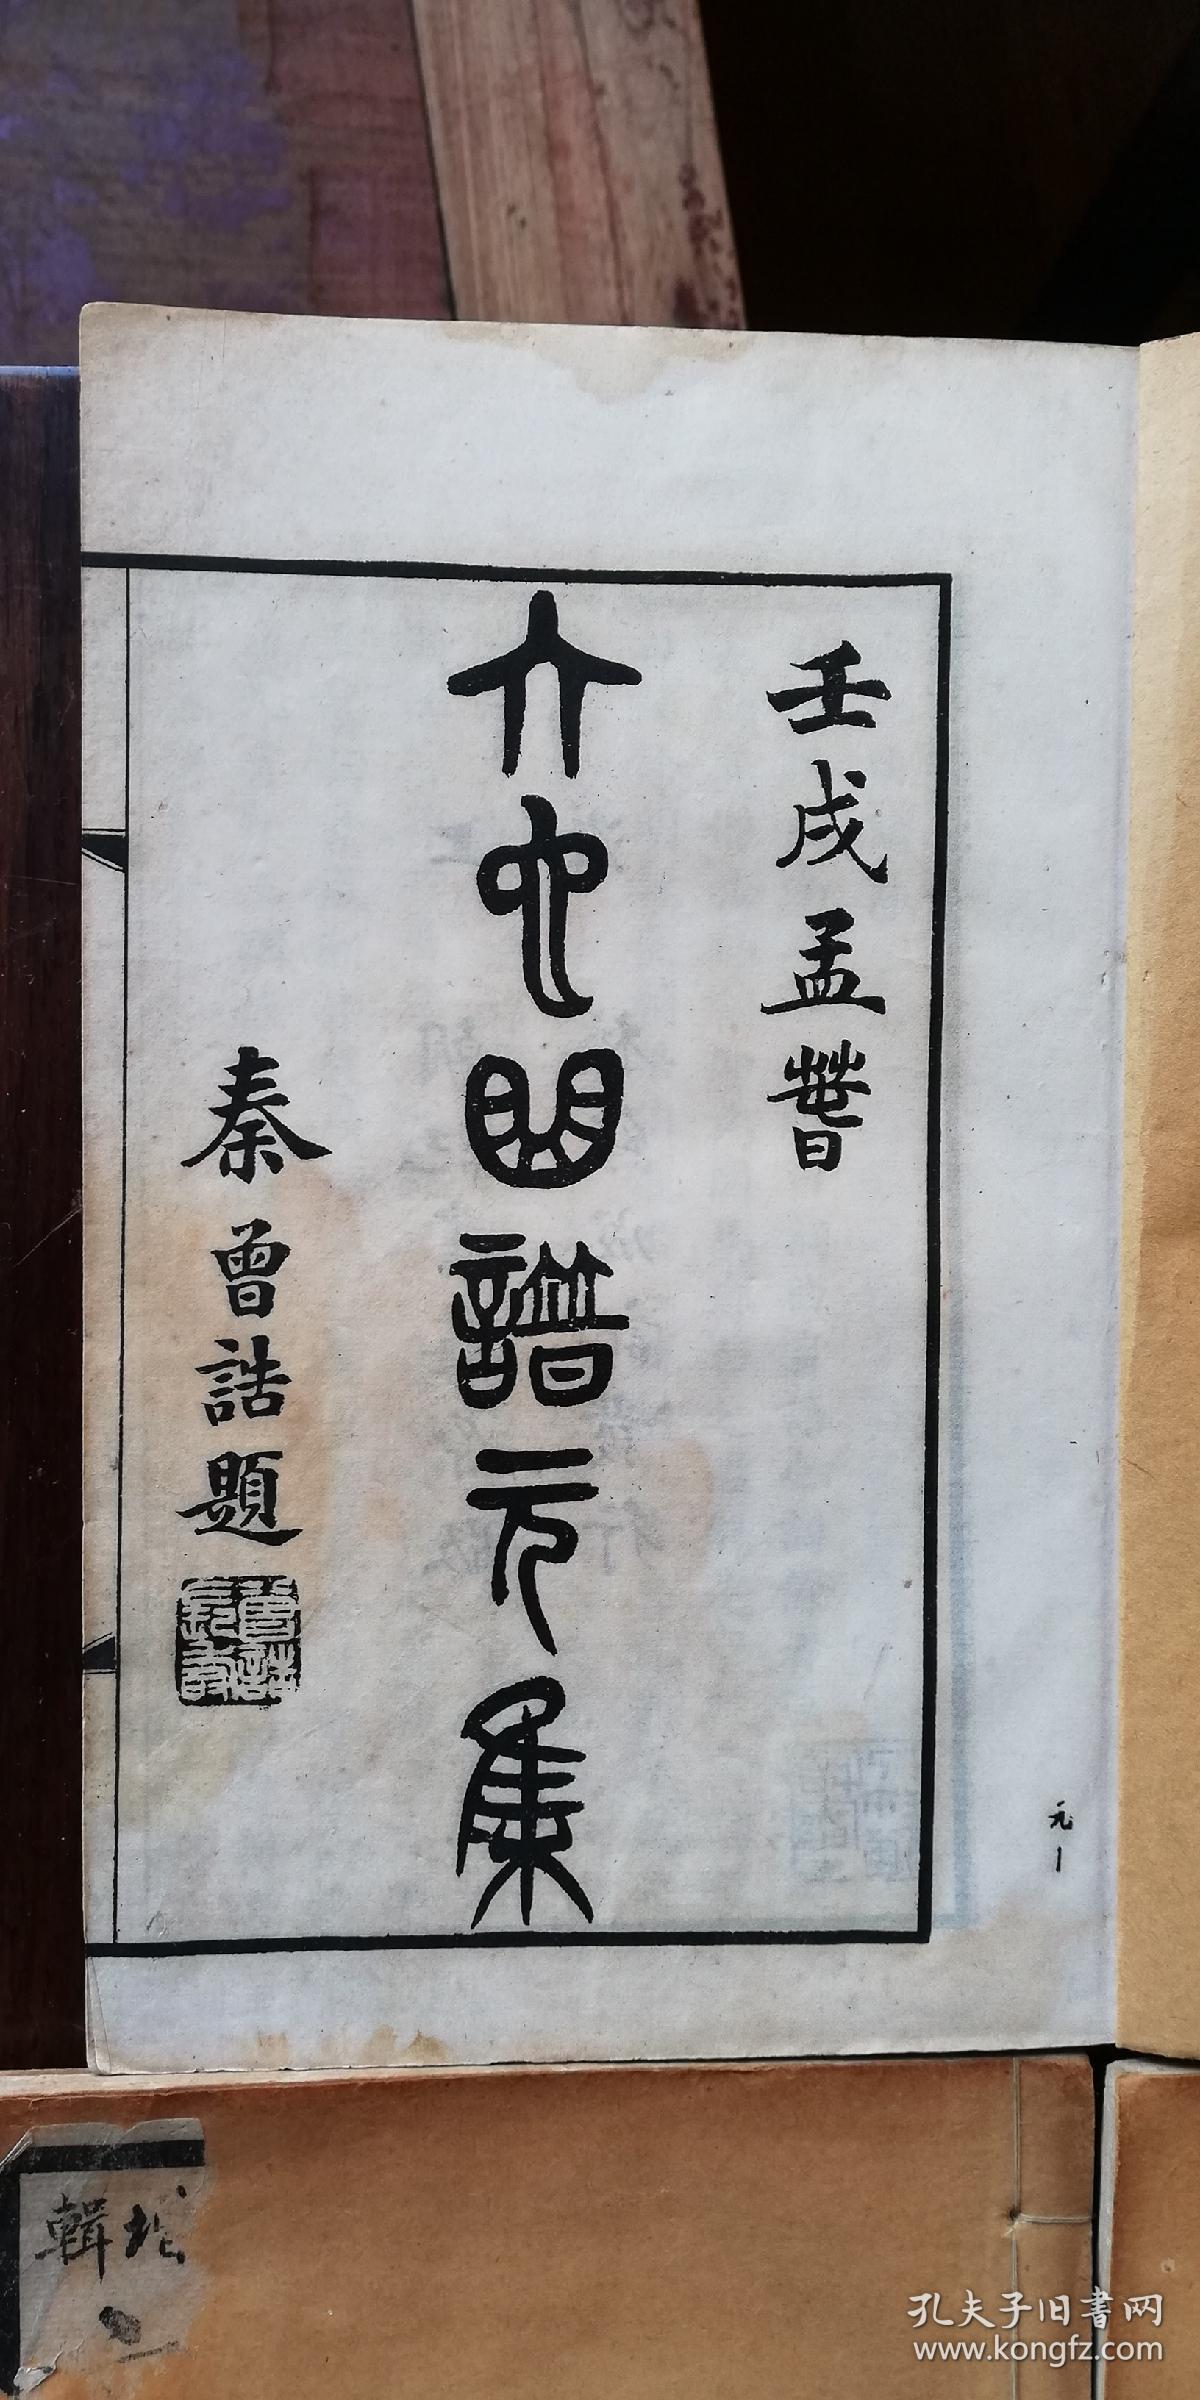 壬戌孟萅
六也曲譜元集
秦曾誥題
元一
輯
孔夫子旧書网
www.kongfz.com